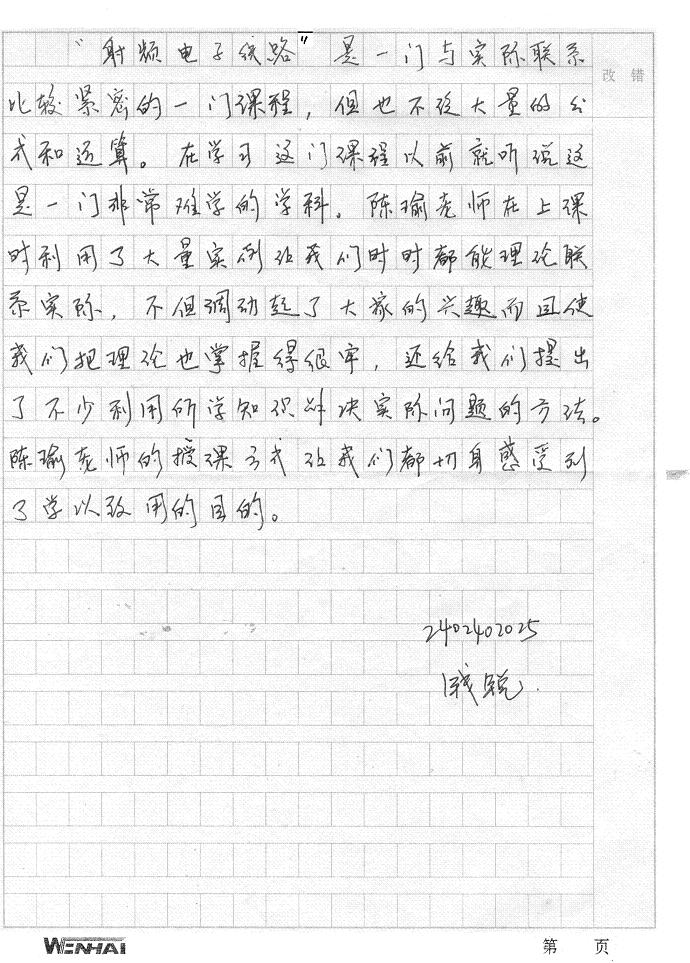 “射频电子线路”是一门与实际联系
改错
比较紧密的一门课程，但也不乏大量的公
式和运算。在学习这门课程以前就听说这
是一门非常难学的学科。陈瑜老师在上课
时利用了大量实例让我们时时都能理论联
系实际，不但调动起了大家的兴趣而且使
我们把理论也掌握得很牢，还给我们提出
了不少利用所学知识解决实际问题的方法。
陈瑜老师的授课方式让我们都切身感受到
了学以致用的目的。
2402402025
锐
WENHAI
第 页